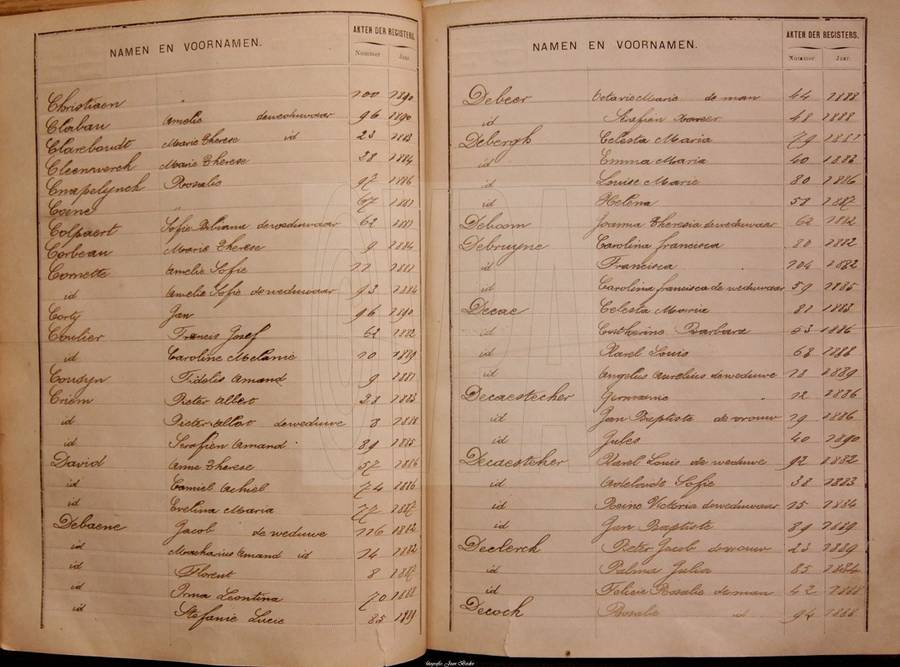 NAMEN EN VOORNAMEN.
AKTEN DER REGISTERS.
Nummer. Jaar.
Christiaen " 100 1890
Clabau Amelie deweduwaar 96 1890
Clareboudt Marie Therese id 23 1883
Cleenwerck Marie Therese 38 1884
Cnapelynck Rosalie 97 1886
Coene " 67 1881
Colpaert Sofie deweduwaar 62 1881
Corbeau Marie Therese 9 1884
Cornette Amelie Sofie 11 1881
id Amelie Sofie deweduwaar 93 1884
Corty Jan 96 1890
Coulier Francis Josef 62 1882
id Caroline Melanie 10 1889
Cousyn Fidelis Amand 9 1881
Criem Pieter Albert 38 1883
id Pieter Albert deweduwe 3 1888
id Serafien Amand 89 1885
David Anne Therese 57 1886
id Camiel Achiel 74 1886
id Evelina Maria 77 1887
Debaene Jacob deweduwe 116 1882
id Macharius Amand id 14 1882
id Florent 8 1887
id Irma Leontina 70 1888
id Stefanie Lucie 85 1889
NAMEN EN VOORNAMEN.
AKTEN DER REGISTERS.
Nummer. Jaar.
Debeer Octavie Marie de man 44 1888
id Serafien 48 1888
Debergh Celesta Maria 79 1881
id Emma Maria 40 1883
id Louise Marie 80 1886
id Helena 58 1887
Deboom Joanna Theresia deweduwaar 62 1882
Debruyne Carolina francisca 80 1882
id Francisca 104 1882
id Carolina francisca de weduwaar 59 1885
Decae Celesta Maria 81 1883
id Catherine Barbara 53 1886
id Karel Louis 63 1886
id Angelus Aurelius deweduwe 13 1889
Decaestecher Germaine 12 1886
id Jan Baptiste de vrouw 19 1886
id Jules 40 1890
Decaestcher Karel Louis de weduwe 92 1882
id Adelaide Sofie 38 1883
id Reine Victoria deweduwaar 15 1884
id Jan Baptiste 89 1889
Declerck Pieter Jacob devrouw 23 1889
id Palma Julia 85 1884
id Felicie Rosalie deman 42 1888
Decock Rosalie id 94 1888